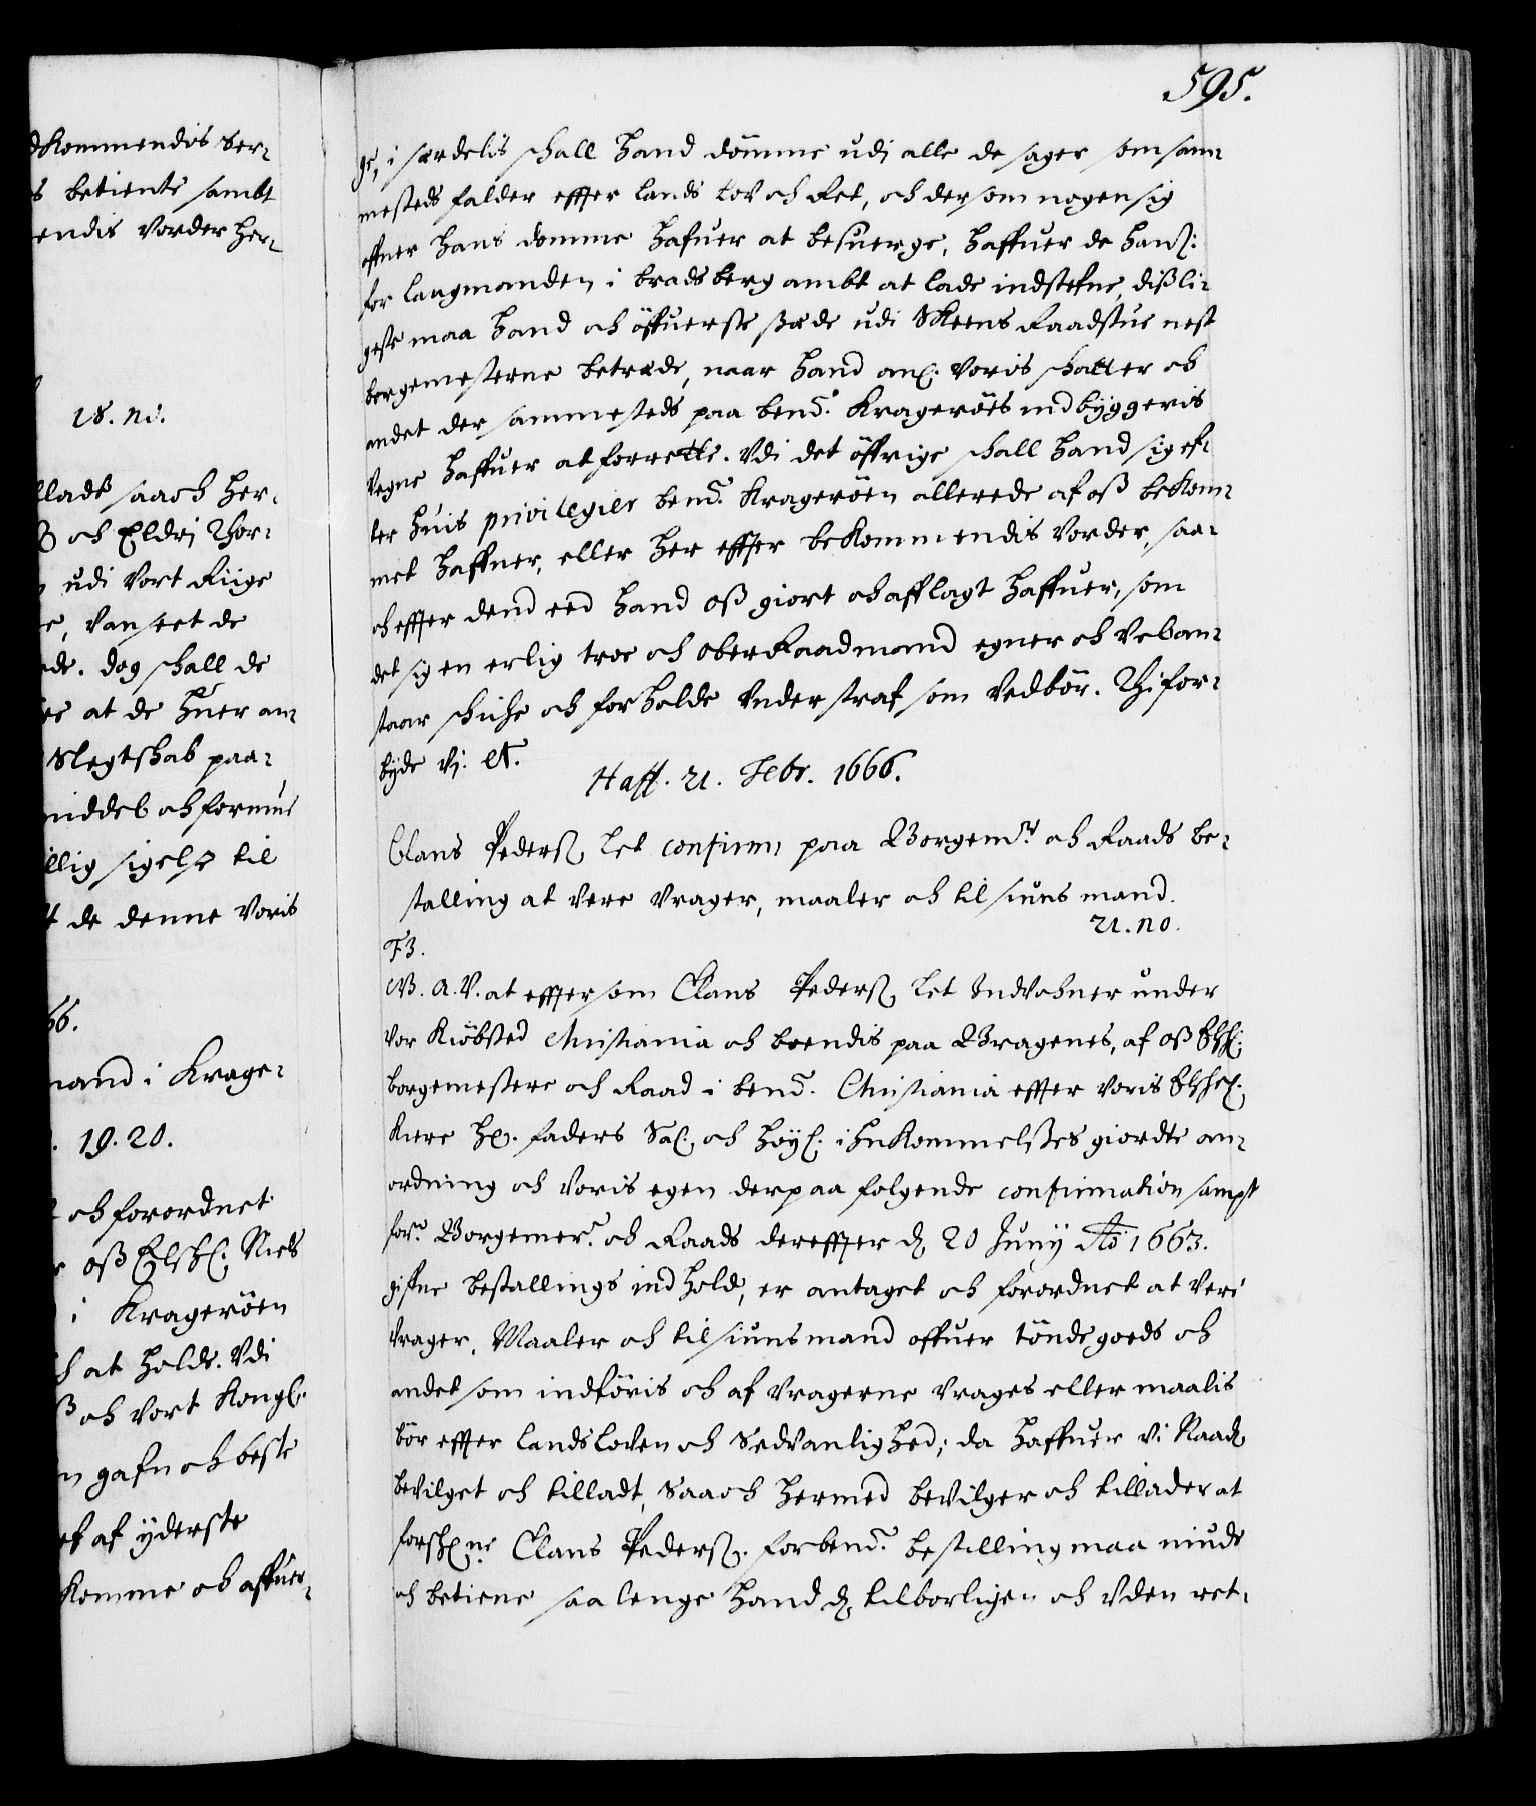 dkommendis ver-
s betiente sambt
endis vorder her-
18. no.
llads saa och her-
ß och Eldrj Thor-
udi vort Riige
e, Vanseet de
de. dog schall de
at de huer an-
Slegtschab paa-
middel och formue
llig sigelse til
t de denne voris
66.
mand i Krage-
. 19. 20.
och forordnet
oß Elschl: Niels
i Kragerøen
h at holde. Vdi
ß och vort Kongl:
n gafn och beste
et af ÿderste
komme och affuer-
595.
ge, i særdelis schall hand dömme udj alle de sager som sam-
mesteds falder effter lands Lov och Ret, och dersom nogen sig
offuer hans domme hafuer at besuerge, haffuer de hanß:
for laugmanden i bradsberg ambt at lade indstefne, dißli-
geste maa hand och öffuerste sæde udi Skeens Raadstue nest
borgemesterne betræde, naar hand anl: voris schatter och
andet der sammesteds paa bend: Krageröes indbÿggeris
Vegne haffuer at forrette. Vdi det öffrige schall hand sig ef-
ter huis privilegier bend: Kragerøen allerede af oß bekom-
met haffuer, eller her effter bekommendis vorder, saa-
och effter dend eed hand oß giort och afflagt haffuer, som
det sig en erlig troe och ober Raadmand egner och Velan-
staar schiche och forholde Vnder straf som vedbör. Thi for-
bÿde Vj. etc.
Haff. 21. Febr. 1666.
Claus Pederß, let confirm paa Borgemr. och Raads be-
stalling at vere vrager, maaler och til siuns mand.
21. no.
F3.
W. A. V. at effter som Claus Pederß, let Indvohner under
vor Kiöbsted Christiania och boendis paa Bragenes, af oß Elschl:
borgemestere och Raad i bend. Christiania effter voris Elschel:
kiere Hr. faders Sal: och Höÿl: ihukommelßes giordte an-
ordning och voris egen derpaa folgende confirmation sampt
for: Borgemer: och Raads dereffter d, 20 Junÿ Ao 1663.
gifne bestallings indhold, er antaget och forordnet at veri
vrager, Maaler och til siunsmand offuer töndegoeds och
andet som indföris och af vragerne vrages eller maalis
bör effter landsloven och Sedvanlighed; da haffuer vi Naad,
bevilget och tilladt, saa och hermed bevilger och tillader at
forschne. Claus Pederß. forbend. bestilling maa niude
och betiene saa lenge hand d, tilborligen och vden ret-